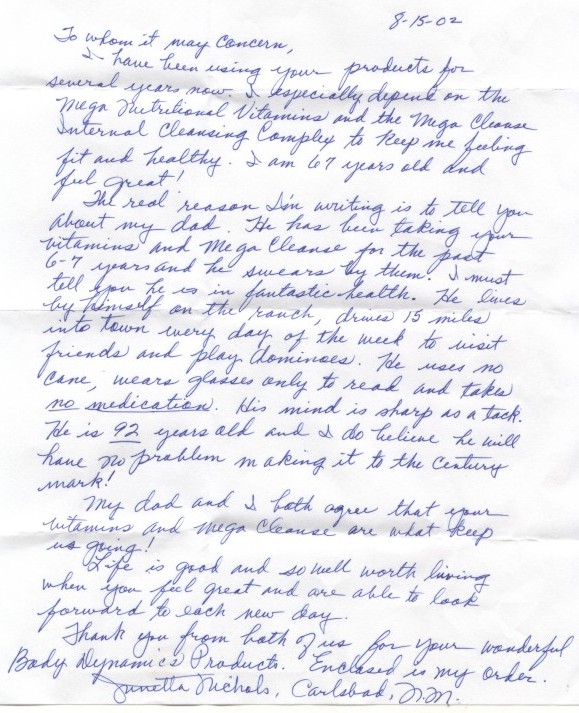 8-15-02
To whom it may concern,
I have been using your products for
several years now. I especially depend on the
Mega Nutritional Vitamins and the Mega Cleanse
Internal Cleansing Complex to keep me feeling
fit and healthy. I am 67 years old and
feel great!
The real reason I'm writing is to tell you
about my dad. He has been taking your
vitamins and Mega Cleanse for the past
6-7 years and he swears by them. I must
tell you he is in fantastic health. He lives
by himself on the ranch, drives 15 miles
into town every day of the week to visit
friends and play dominoes. He uses no
cane, wears glasses only to read and takes
no medication. His mind is sharp as a tack.
He is 92 years old and I do believe he will
have no problem making it to the century
mark!
My dad and I both agree that your
vitamins and Mega Cleanse are what keep
us going!
Life is good and so well worth living
when you feel great and are able to look
forward to each new day.
Thank you from both of us for your wonderful
Body Dynamics Products. Enclosed is my order.
Junetta Nichols, Carlsbad, N.M.